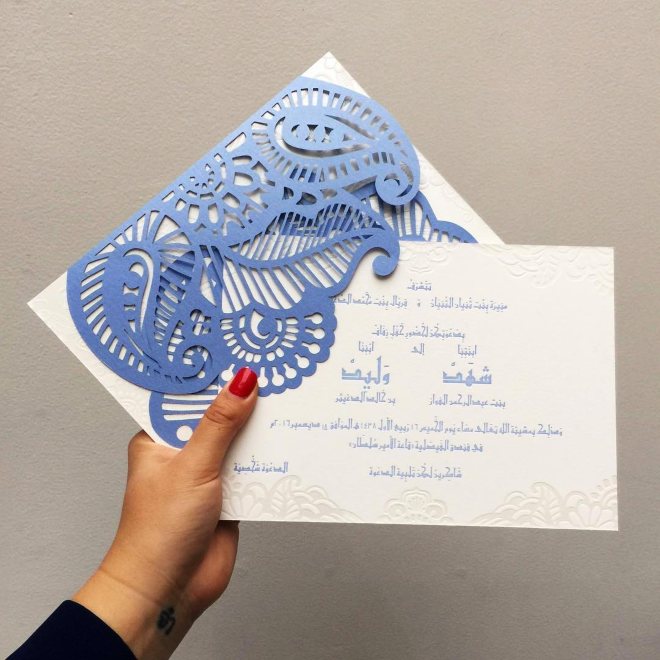 تتشرف
منيرة بنت ثنيان الثنيان و فريال بنت محمد
بدعوتكم لحضور حفل زفاف
ابنتنا إلى ابننا
شهد وليد
بنت عبدالرحمن الفواز بن خالد الصغير
وذلك بمشيئة الله تعالى مساء يوم الخميس ١٦ ربيع الأول ١٤٣٨هـ الموافق ١٥ ديسمبر ٢٠١٦م
في فندق الفيصلية (قاعة الأمير سلطان)
شاكرين لكم تلبية الدعوة الدعوة شخصية